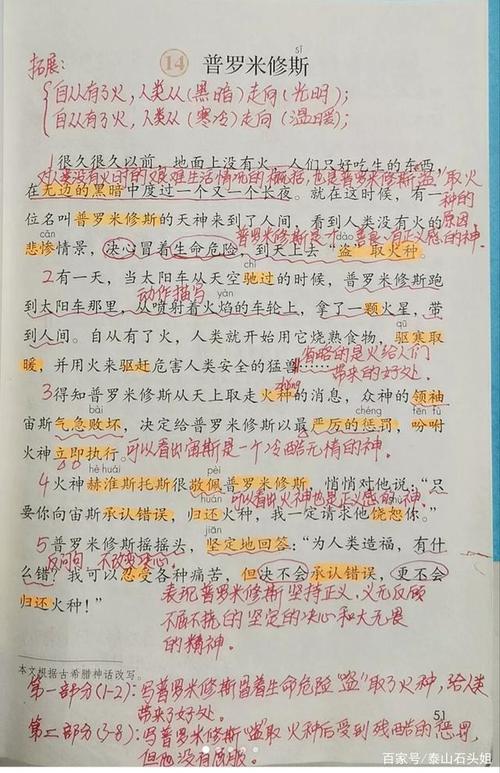 sī
14 普罗米修斯
拓展:
自从有了火,人类从(黑暗)走向(光明);
自从有了火,人类从(寒冷)走向(温暖);
1 很久很久以前,地面上没有火,人们只好吃生的东西,
对人类没有火时的艰难生活情况的概括,也是普罗米修斯“盗”取火种的原因
在无边的黑暗中度过一个又一个长夜。就在这时候,有一
位名叫普罗米修斯的天神来到了人间,看到人类没有火的
普罗米修斯是个善良、有正义感的神.
cǎn dào
悲惨情景,决心冒着生命危险,到天上去“盗”取火种。
chí
2 有一天,当太阳车从天空驰过的时候,普罗米修斯跑
动作描写
yàn
到太阳车那里,从喷射着火焰的车轮上,拿了一颗火星,带
qū
到人间。自从有了火,人类就开始用它烧熟食物,驱寒取
暖,并用火来驱赶危害人类安全的猛兽……
省略的是火给人们
带来的好处.
3 得知普罗米修斯从天上取走火种的消息,众神的领袖
zhǒng
bài chéng fēn fù
宙斯气急败坏,决定给普罗米修斯以最严厉的惩罚,吩咐
火神立即执行。
可以看出宙斯是一个冷酷无情的神.
hè huái pèi
4 火神赫淮斯托斯很敬佩普罗米修斯,悄悄对他说:“只
可以看出火神也是正义感的神.
shù
要你向宙斯承认错误,归还火种,我一定请求他饶恕你。”
jiān
5 普罗米修斯摇摇头,坚定地回答:“为人类造福,有什
反问句 不改变决心.
么错?我可以忍受各种痛苦,但决不会承认错误,更不会
归还火种!”
表现普罗米修斯坚持正义,义无反顾
不屈不挠的坚定的决心和大无畏
的精神.
本文根据古希腊神话改写。
第一部分(1-2):写普罗米修斯冒着生命危险“盗”取了火种,给人类
带来了好处.
51
第二部分(3-8):写普罗米修斯“盗”取火种后受到残酷的惩罚,
但他没有屈服.
百家号/泰山石头姐